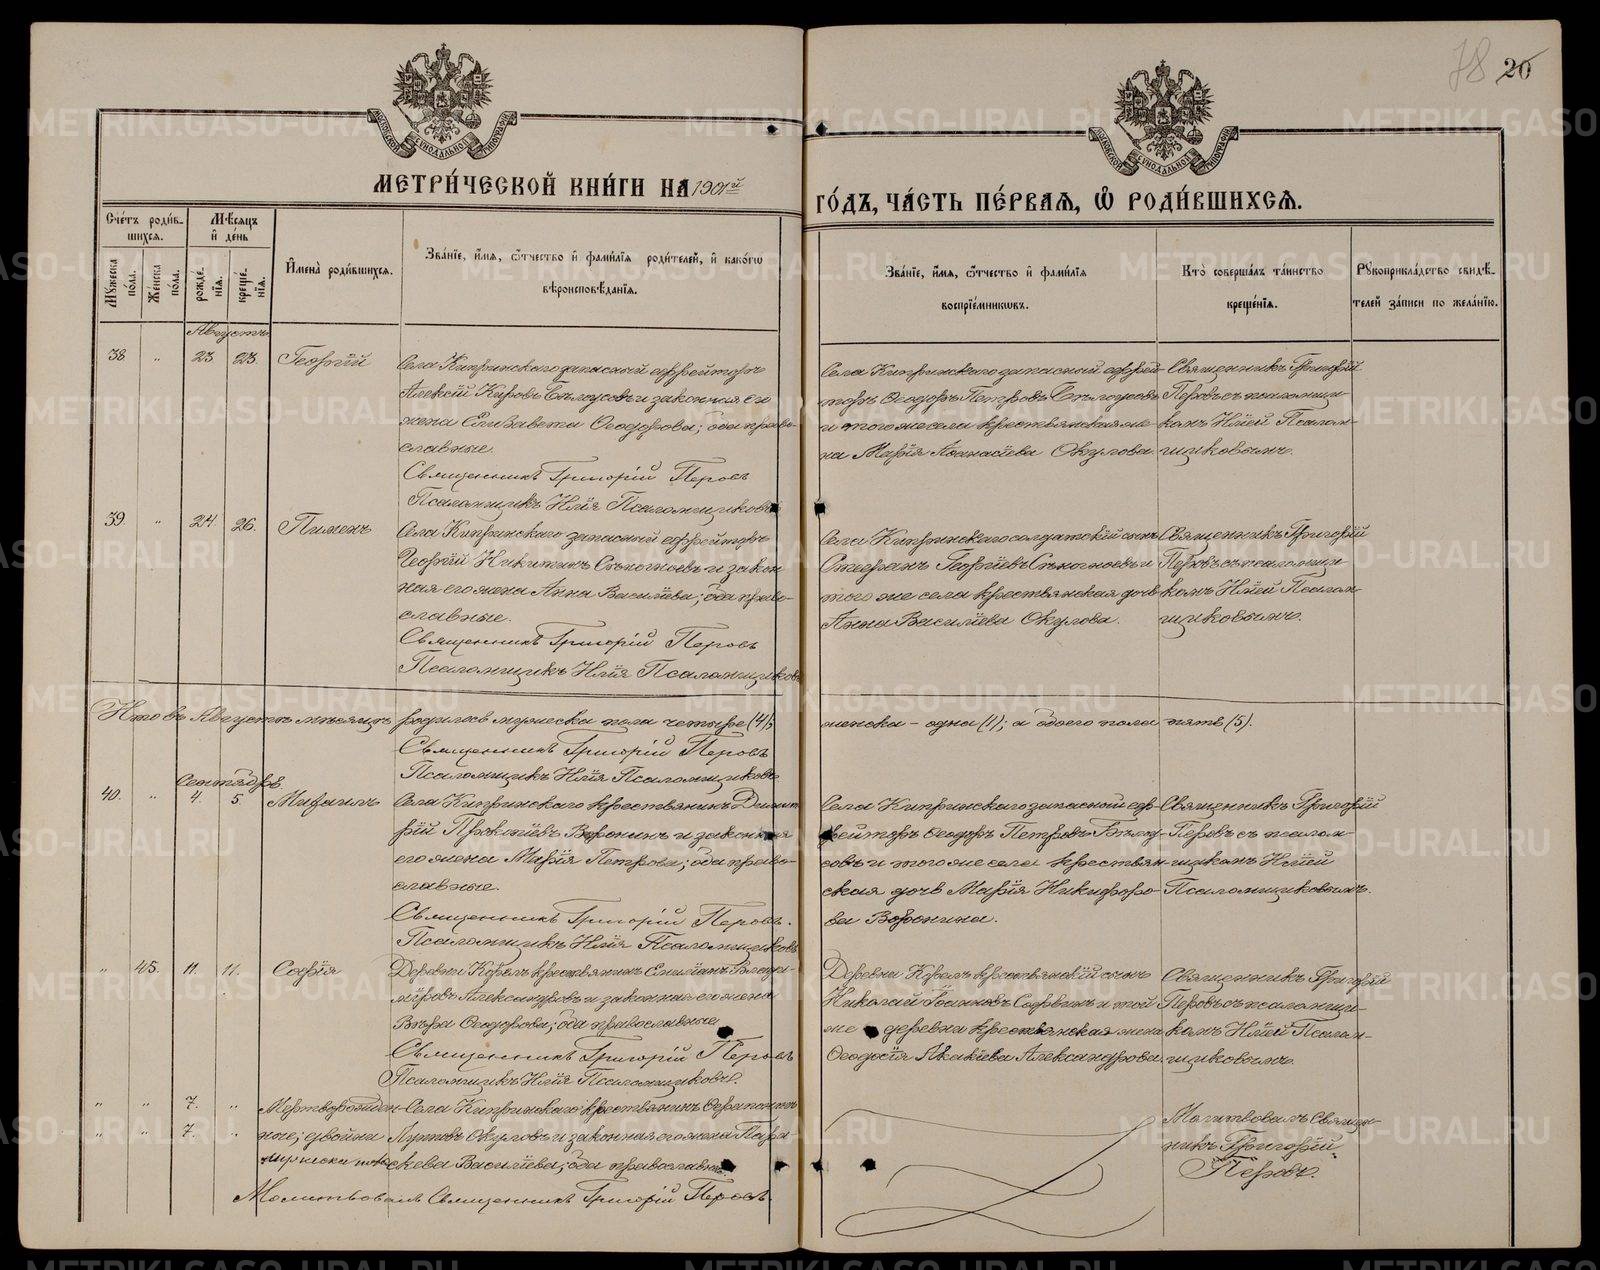 78 20
МОСКОВСКОЙ СѴНОДАЛЬНОЙ ТИПОГРАФІИ
МОСКОВСКОЙ СѴНОДАЛЬНОЙ ТИПОГРАФІИ
МЕТРИ́ЧЕСКОЙ КНИ́ГИ НА 1901й
ГО́ДЪ, ЧА́СТЬ ПЕ́РВАЯ, Ѡ҆ РОДИ́ВШИХСЯ.
Сче́тъ роди́в-
шихся.
Мѣ́сяцъ
и҆ де́нь
Му́жеска по́ла.
Же́нска по́ла.
рожде́-
нїя.
креще́-
нїя.
И҆мена̀ роди́вшихся.
Зва́нїе, и҆́мя, ѻ҆́тчество и҆ фами́лїя роди́телей, и҆ како́гѡ
вѣроисповѣ́данїя.
Зва́нїе, и҆́мя, ѻ҆́тчество и҆ фами́лїя
воспрїе́мникѡвъ.
Кто̀ соверша́лъ та́инство
креще́нїя.
Рꙋкоприкла́дство свидѣ́-
телей за́писи по жела́нїю.
Августъ
38 „ 23 23. Георгій
Села Кипринскаго запасный ефрейторъ
Алексій Кировъ Бѣлоусовъ и законная его
жена Елизавета Ѳеодорова; оба право-
славные.
Священникъ Григорій Перовъ
Псаломщикъ Илія Псаломщиковъ
Села Кипринскаго запасной ефрей-
торъ Ѳеодоръ Петровъ Бѣлоусовъ
и того же села крестьянская же-
на Марія Аѳанасіева Окулова.
Священникъ Григорій
Перовъ съ псаломщи-
комъ Иліей Псалом-
щиковымъ.
39. „ 24. 26. Пименъ
Села Кипринскаго запасный ефрейторъ
Георгій Никитинъ и закон-
ная его жена Анна Василіева; оба право-
славные.
Священникъ Григорій Перовъ
Псаломщикъ Илія Псаломщиковъ
Села Кипринскаго солдатскій сынъ
Стефанъ Георгіевъ и
того же села крестьянская дочь
Анна Василіева Окулова.
Священникъ Григорій
Перовъ съ псаломщи-
комъ Иліей Псалом-
щиковымъ.
Итого въ Августѣ мѣсяцѣ родилось мужеска пола четыре (4);
женска – одна (1); а обоего пола пять (5).
Священникъ Григорій Перовъ
Псаломщикъ Илія Псаломщиковъ
Сентябрь
40. „ 4. 5 Михаилъ
Села Кипринскаго крестьянинъ Димит-
рій Прокопіевъ Воронинъ и законная
его жена Марія Петрова; оба право-
славные.
Священникъ Григорій Перовъ.
Псаломщикъ Илія Псаломщиковъ
Села Кипринскаго запасной еф-
рейторъ Ѳеодоръ Петровъ Бѣлоу-
совъ и того же села крестьян-
ская дочь Марія Никифоро-
ва Воронина.
Священникъ Григорій
Перовъ съ псалом-
щикомъ Иліей
Псаломщиковымъ.
„ 45. 11. 11. Софія
Деревни крестьянинъ Емиліанъ Влади-
міровъ Александровъ и законная его жена
Вѣра Ѳеодорова; оба православные
Священникъ Григорій Перовъ
Псаломщикъ Илія Псаломщиковъ.
Деревни крестьянскій сынъ
Николай Іоанновъ и той
же деревни крестьянская жена
Ѳеодосія Акакіева Александрова.
Священникъ Григорій
Перовъ съ псаломщи-
комъ Иліей Псалом-
щиковымъ.
„ „ 7. „ Мертворожден-
„ „ 7. „ ные; двойни
мужеска пола
Села Кипринскаго крестьянинъ
Окуловъ и законная его жена Пара-
скева Василіева; оба православные.
Молитвовалъ Священникъ Григорій Перовъ.
Молитвовалъ Священ-
никъ Григорій
Перовъ.
METRIKI.GASO-URAL.RU